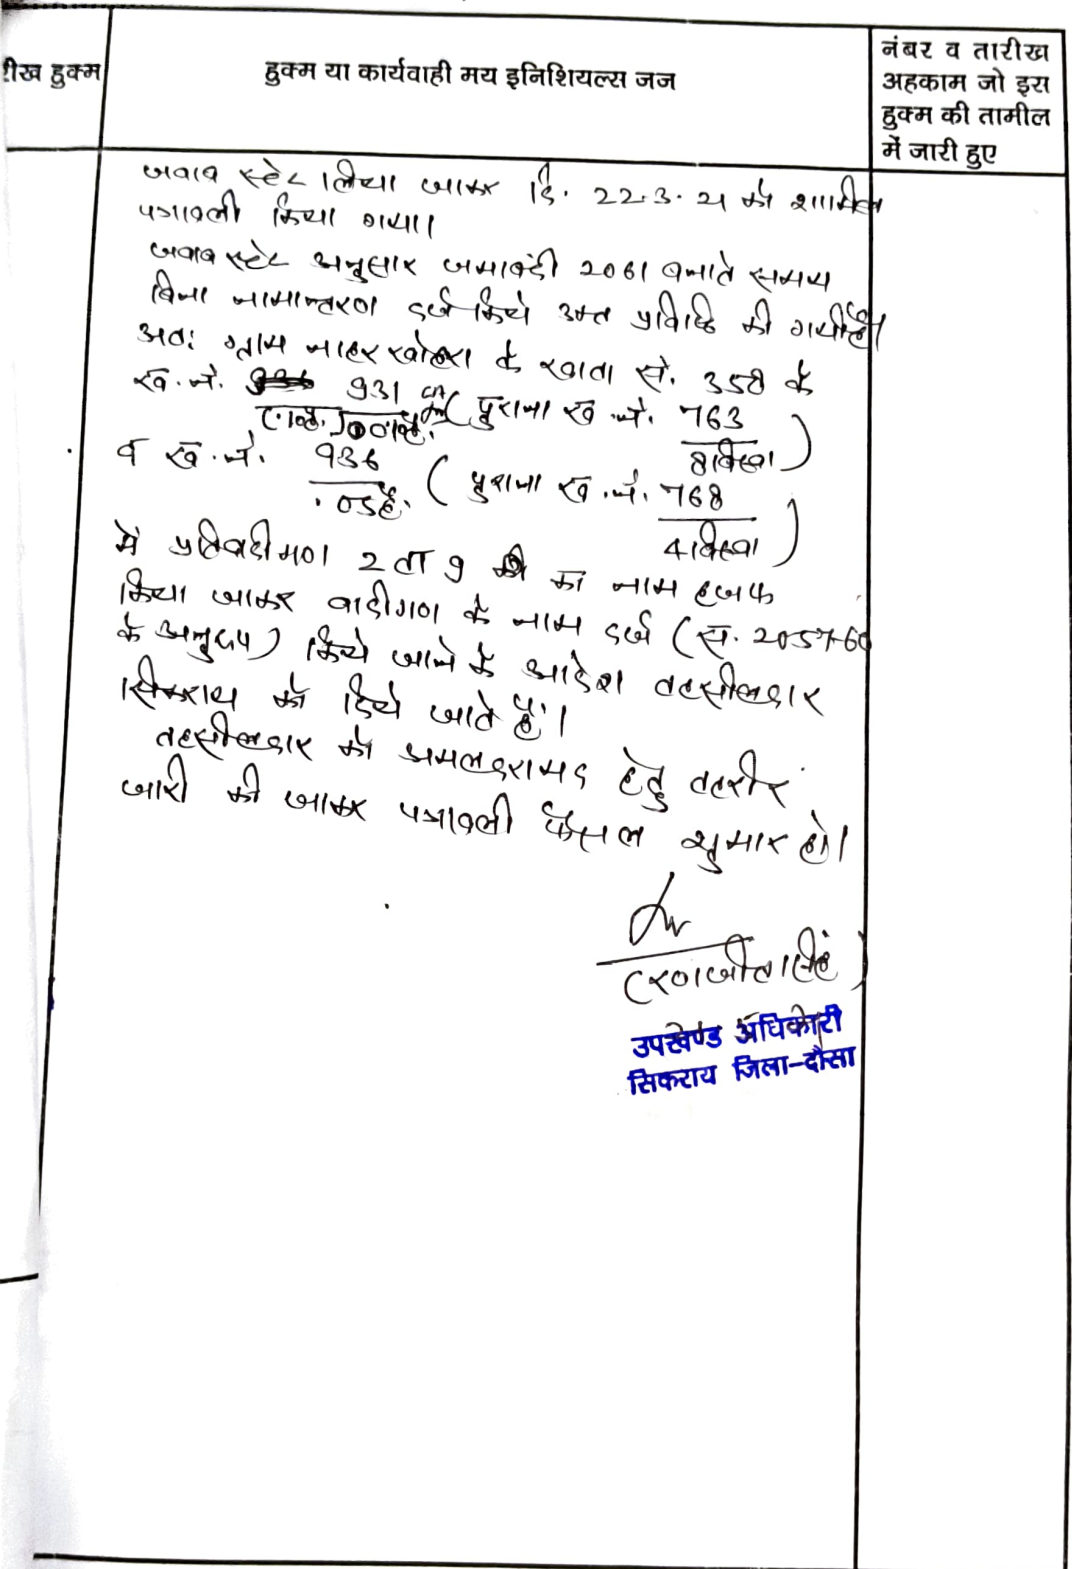 रीख हुक्म
हुक्म या कार्यवाही मय इनिशियल्स जज
नंबर व तारीख
अहकाम जो इस
हुक्म की तामील
में जारी हुए
जवाब स्टेट लिया जाकर दि. 22.3.21 को शामिल
पत्रावली किया गया।
जवाब स्टेट अनुसार जमाबंदी 2061 बनाते समय
बिना नामान्तरण दर्ज किये उक्त प्रविष्टि की गयी है।
अतः ग्राम नाहरखोहरा के खाता सं. 358 के
ख.नं. 931 (पुराना ख.नं. 763
8 बिस्वा)
व ख.नं. 936 (पुराना ख.नं. 768
.05 है. 4 बिस्वा)
में प्रतिवादीगण 2 ता 9 का नाम हजफ
किया जाकर वादीगण के नाम दर्ज (सं. 2057-60
के अनुरूप) किये जाने के आदेश तहसीलदार
सिकराय को दिये जाते हैं।
तहसीलदार को अमलदरामद हेतु तहरीर
जारी की जाकर पत्रावली फैसल शुमार हो।
(रणजीत सिंह)
उपखण्ड अधिकारी
सिकराय जिला-दौसा